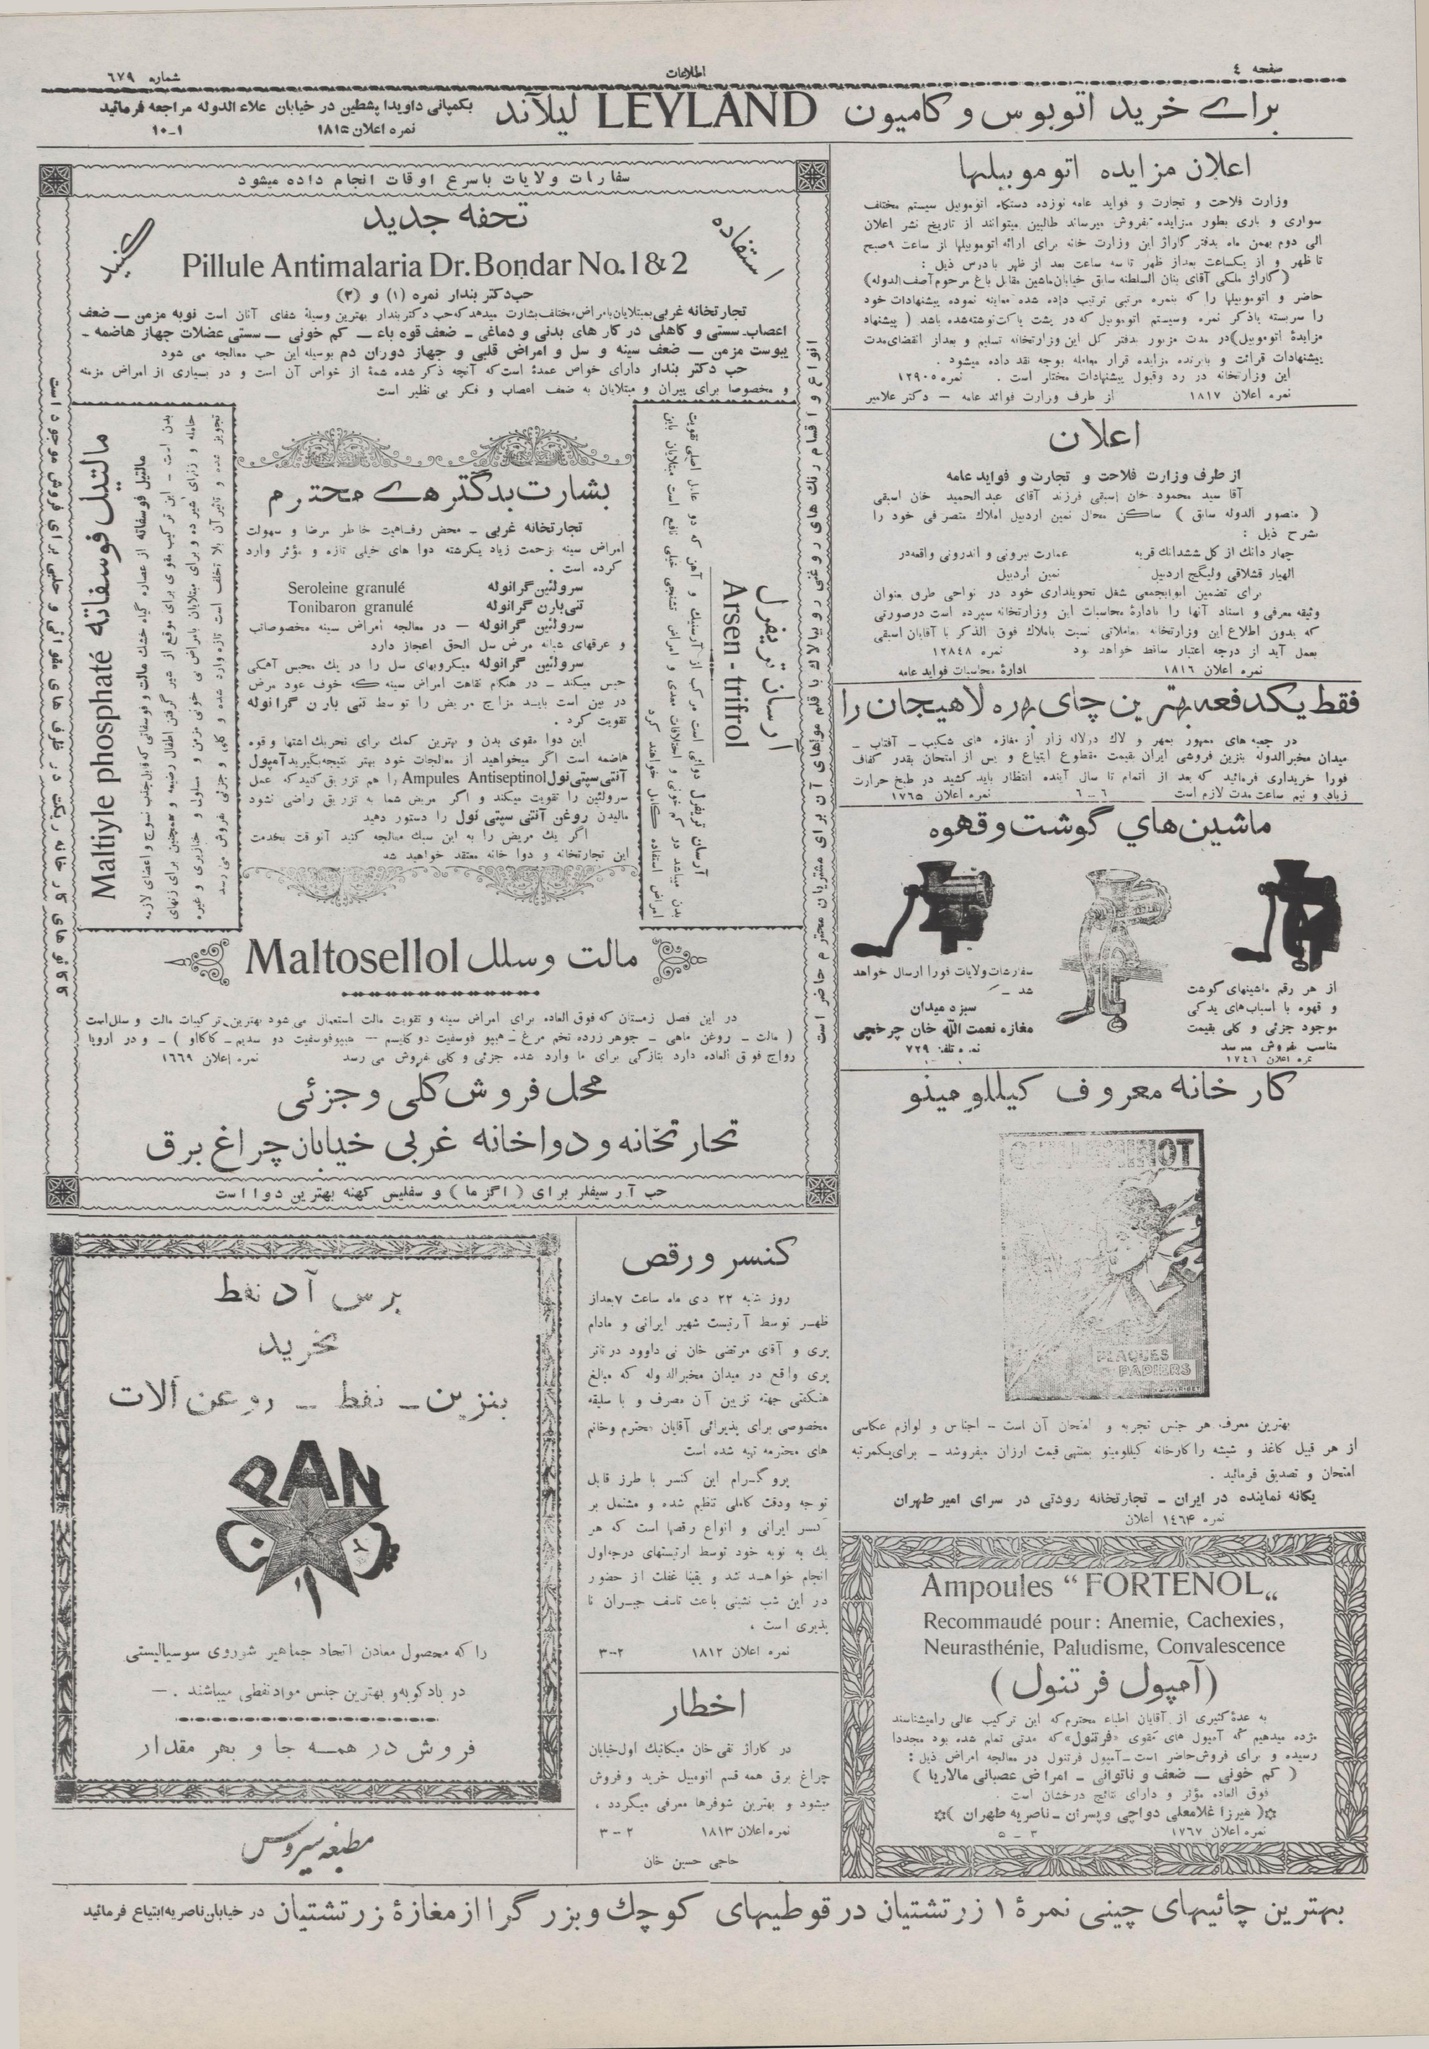 صفحه ٤
اطلاعات
شماره ٦٧٩
برای خرید اتوبوس و کامیون LEYLAND لیلاند
بکمپانی داویدا پشطین در خیابان علاء الدوله مراجعه فرمائید
نمره اعلان ۱۸۱۵
۱-۱۰
اعلان مزایده اتوموبیلها
وزارت فلاحت و تجارت و فواید عامه نوزده دستگاه اتوموبیل سیستم مختلف
سواری و باری بطور مزایده بفروش میرساند طالبین میتوانند از تاریخ نشر اعلان
الی دوم بهمن ماه بدفتر گاراژ این وزارت خانه برای ارائه اتوموبیلها از ساعت ۹ صبح
تا ظهر و از یکساعت بعد از ظهر تا سه ساعت بعد از ظهر با درس ذیل :
(گاراژ ملکی آقای بنان السلطنه سابق خیابان ماشین مقابل باغ مرحوم آصف الدوله)
حاضر و اتوموبیلها را که بنمره مرتبی ترتیب داده شده معاینه نموده پیشنهادات خود
را سربسته با ذکر نمره و سیستم اتوموبیل که در پشت پاکت نوشته شده باشد ( پیشنهاد
مزایدهٔ اتوموبیل) در مدت مزبور بدفتر کل این وزارتخانه تسلیم و بعد از انقضای مدت
پیشنهادات قرائت و با برنده مزایده قرار معامله بوجه نقد داده میشود .
این وزارتخانه در رد و قبول پیشنهادات مختار است . نمره ۱۲۹۰۵
نمره اعلان ۱۸۱۷ از طرف وزارت فوائد عامه — دکتر علامیر
اعلان
از طرف وزارت فلاحت و تجارت و فواید عامه
آقا سید محمود خان اسبقی فرزند آقای عبد الحمید خان اسبقی
( منصور الدوله سابق ) ساکن محال نمین اردبیل املاک متصرفی خود را
بشرح ذیل :
چهار دانك از کل ششدانك قریه عمارت بیرونی و اندرونی واقعه در
الهیار قشلاقی ولیگیج اردبیل نمین اردبیل
برای تضمین ابوابجمعی شغل تحویلداری خود در نواحی طرق بعنوان
وثیقه معرفی و اسناد آنها را بادارهٔ محاسبات این وزارتخانه سپرده است در صورتی
که بدون اطلاع این وزارتخانه معاملاتی نسبت باملاك فوق الذکر با آقایان اسبقی
بعمل آید از درجه اعتبار ساقط خواهد بود نمره ۱۲۸۴۸
نمره اعلان ۱۸۱۶ ادارهٔ محاسبات فواید عامه
فقط یکدفعه بهترین چای بهره لاهیجان را
در جعبه های ممهور بمهر و لاك در لاله زار از مغازه های شکیب — آفتاب —
میدان مخبر الدوله بنزین فروشی ایران بقیمت مقطوع ابتیاع و پس از امتحان بقدر کفاف
فورا خریداری فرمائید که بعد از اتمام تا سال آینده انتظار باید کشید در طبخ حرارت
زیاد و نیم ساعت مدت لازم است ٦-٦ نمره اعلان ۱۷۶۵
ماشین های گوشت و قهوه
از هر رقم ماشینهای گوشت
و قهوه با اسباب های یدکی
موجود جزئی و کلی بقیمت
مناسب بفروش میرسد
نمره اعلان ۱۷٤٦
سفارشات ولایات فورا ارسال خواهد
شد —
سبزه میدان
مغازه نعمت الله خان چرخچی
نمره تلفن ۷۲۹
کارخانه معروف کیللومینو
GUILLEMINOT
PLAQUES
PAPIERS
بهترین معرف هر جنس تجربه و امتحان آن است — اجناس و لوازم عکاسی
از هر قبیل کاغذ و شیشه را کارخانه کیللومینو بمنتهی قیمت ارزان میفروشد — برای یکمرتبه
امتحان و تصدیق فرمائید .
یگانه نماینده در ایران — تجارتخانه رودتی در سرای امیر طهران
نمره ۱۴۶۴ اعلان
Ampoules “FORTENOL„
Recommaudé pour : Anemie, Cachexies,
Neurasthénie, Paludisme, Convalescence
(آمپول فرتنول)
به عدهٔ کثیری از آقایان اطباء محترم که این ترکیب عالی را میشناسند
مژده میدهیم که آمپول های مقوی «فرتنول» که مدتی تمام شده بود مجددا
رسیده و برای فروش حاضر است — آمپول فرتنول در معالجه امراض ذیل :
( کم خونی — ضعف و ناتوانی — امراض عصبانی مالاریا )
فوق العاده مؤثر و دارای نتایج درخشان است .
( میرزا غلامعلی دواچی و پسران — ناصریه طهران )
نمره اعلان ۱۷۶۷ ۳ — ۵
سفارشات ولایات باسرع اوقات انجام داده میشود
انواع و اقسام رنك های روغنی روبیلاك با قلم مواهای آن برای مشتریان محترم حاضر است
استفاده
تحفه جدید
کنید
Pillule Antimalaria Dr. Bondar No. 1 & 2
حب دکتر بندار نمره (۱) و (۲)
تجارتخانه غربی بمبتلایان بامراض مختلف بشارت میدهد که حب دکتر بندار بهترین وسیلهٔ شفای آنان است نوبه مزمن — ضعف
اعصاب سستی و کاهلی در کار های بدنی و دماغی — ضعف قوه باء — کم خونی — سستی عضلات جهاز هاضمه —
یبوست مزمن — ضعف سینه و سل و امراض قلبی و جهاز دوران دم بوسیله این حب معالجه می شود
حب دکتر بندار دارای خواص عمده است که آنچه ذکر شده شمهٔ از خواص آن است و در بسیاری از امراض مزمنه
و مخصوصا برای پیران و مبتلایان به ضعف اعصاب و فکر بی نظیر است
ارسان تریفرل
Arsen - trifrol
آرسان تریفرل دوائی است مرکب از آرسنيك و آهن که دو عامل اصلی تقویت
بدن میباشد در کم خونی و اختلافات معدی و امراض تشنجی خیلی نافع است مبتلایان باین
امراض استفاده کامل خواهند کرد
بشارت بدکترهای محترم
تجارتخانه غربی — محض رفاهیت خاطر مرضا و سهولت
امراض سینه بزحمت زیاد یکرشته دوا های خیلی تازه و مؤثر وارد
کرده است .
سرولئین گرانوله Seroleine granulé
تنی بارن گرانوله Tonibaron granulé
سرولئین گرانوله — در معالجه امراض سینه مخصوصا تب
و عرقهای شبانه مرض سل الحق اعجاز دارد
سرولئین گرانوله میکروبهای سل را در یك محبس آهکی
حبس میکند — در هنگام نقاهت امراض سینه که خوف عود مرض
در بین است باید مزاج مریض را توسط تنی بارن گرانوله
تقویت کرد .
این دوا مقوی بدن و بهترین کمك برای تحریك اشتها و قوه
هاضمه است اگر میخواهید از معالجات خود بهتر نتیجه بگیرید آمپول
آنتی سپتی نول Ampules Antiseptinol را هم تزریق کنید که عمل
سرولئین را تقویت میکند و اگر مریض شما به تزریق راضی نشود
مالیدن روغن آنتی سپتی نول را دستور دهید
اگر یك مریض را به این سبك معالجه کنید آنوقت بخدمت
این تجارتخانه و دوا خانه معتقد خواهید شد
مالتیل فوسفاته Maltiyle phosphaté
مالتیل فوسفاته از عصاره گیاه خشك مالت و فوسفاتی که قابل جذب نسوج و اعضای لازمه
بدن است — این ترکیب مقوی برای موقع از شیر گرفتن اطفال رضیعه و همچنین برای زنهای
حامله و زنهای شیرده و برای مبتلایان بامراض بی خونی مزمن و مسلول و خنازیری و غیره
تجویز شده و تاثیر آن بلا تخلف است تازه وارد شده و کلی و جزئی فروش می رسد
مالت وسلل Maltosellol
در این فصل زمستان که فوق العاده برای امراض سینه و تقویت مالت استعمال می شود بهترین ترکیبات مالت و سلل است
( مالت — روغن ماهی — جوهر زرده تخم مرغ — هیپو فوسفیت دو کلسیم — هیپوفوسفیت دو سدیم — کاکااو ) — و در اروپا
رواج فوق العاده دارد بتازگی برای ما وارد شده جزئی و کلی فروش می رسد نمره اعلان ۱۶۶۹
محل فروش کلی و جزئی
تجارتخانه و دواخانه غربی خیابان چراغ برق
حب آر سیفلر برای ( اگز ما ) و سفلیس کهنه بهترین دوا است
کنسر و رقص
روز شنبه ۲۲ دی ماه ساعت ۷ بعد از
ظهر توسط آرتیست شهیر ایرانی و مادام
پری و آقای مرتضی خان نی داوود در تاتر
پری واقع در میدان مخبرالدوله که مبالغ
هنگفتی جهته تزیین آن مصرف و با سلیقه
مخصوصی برای پذیرائی آقایان محترم و خانم
های محترمه تهیه شده است
پروگرام این کنسر با طرز قابل
توجه ودقت کاملی تنظیم شده و مشتمل بر
کنسر ایرانی و انواع رقصها است که هر
یك به نوبه خود توسط ارتیستهای درجه اول
انجام خواهد شد و یقینا غفلت از حضور
در این شب نشینی باعث تاسف جبران نا
پذیری است .
نمره اعلان ۱۸۱۲ ۲-۳
اخطار
در گاراژ تقی خان میکانیك اول خیابان
چراغ برق همه قسم اتومبیل خرید و فروش
میشود و بهترین شوفرها معرفی میگردد .
نمره اعلان ۱۸۱۳ ۲ — ۳
حاجی حسین خان
پرس آد نفط
بخرید
بنزین — نفط — روغن آلات
PAN
را که محصول معادن اتحاد جماهیر شوروی سوسیالیستی
در بادکوبه و بهترین جنس مواد نفطی میباشند . —
فروش در همه جا و بهر مقدار
مطبعه سیروس
بهترین چائیهای چینی نمرهٔ ۱ زرتشتیان در قوطیهای کوچك و بزرگ را از مغازهٔ زرتشتیان در خیابان ناصریه ابتیاع فرمائید